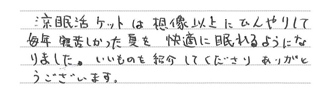 涼眠活ケットは想像以上にひんやりして
毎年寝苦しかった夏を快適に眠れるようにな
りました。いいものを紹介してくださりありがと
うございます。